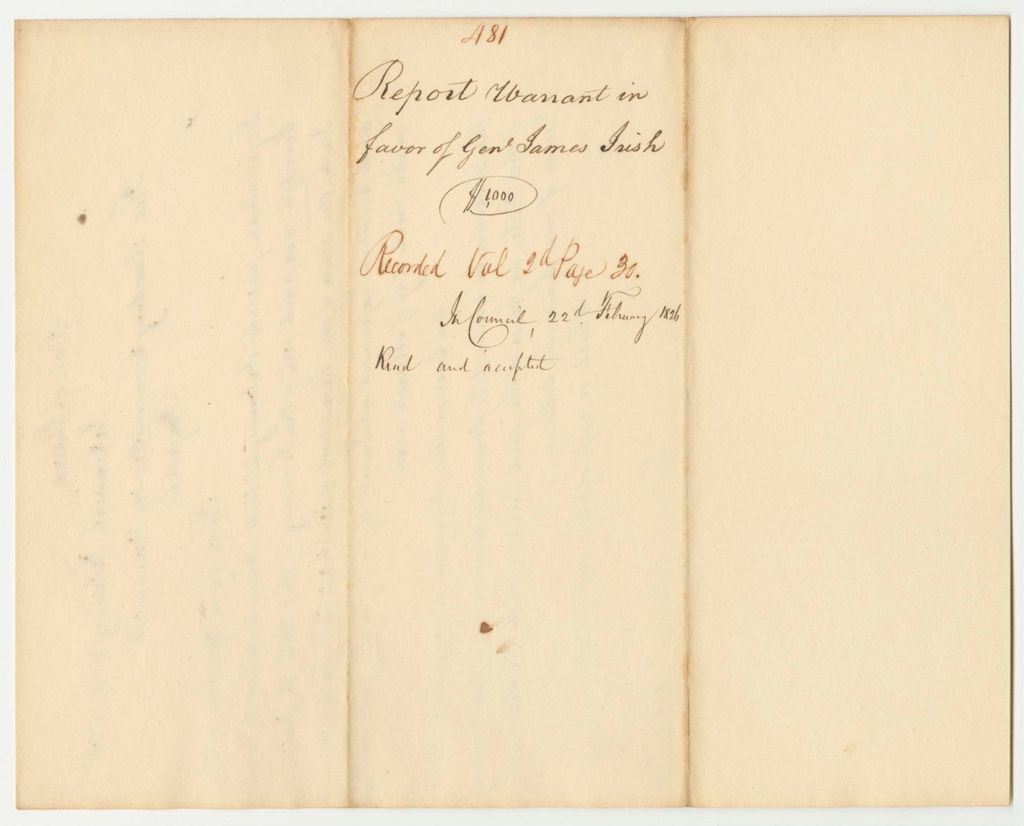 481
Report Warrant in
favor of Genl James Irish
$1,000
Recorded Vol 2d Page 30.
In Council, 22d February 1826
Read and accepted